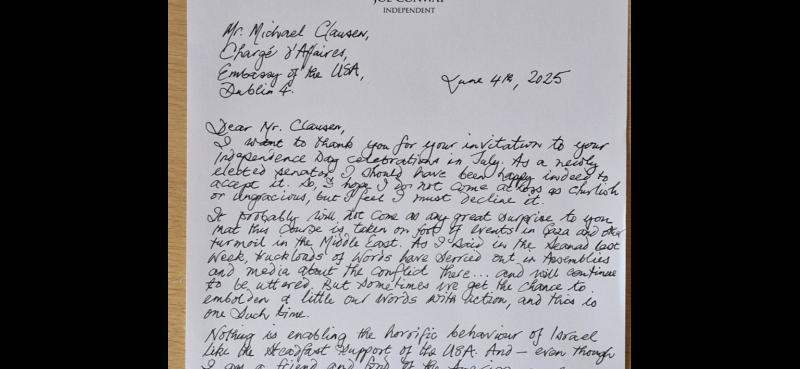 JOE CONWAY
INDEPENDENT
Mr. Michael Clausen,
Chargé d'Affaires,
Embassy of the USA,
Dublin 4.
June 4th, 2025
Dear Mr. Clausen,
I want to thank you for your invitation to your
Independence Day celebrations in July. As a newly
elected senator I should have been happy indeed to
accept it. So, I hope I do not come across as churlish
or ungracious, but I feel I must decline it.
It probably will not come as any great surprise to you
that this course is taken on foot of events in Gaza and other
turmoil in the Middle East. As I said in the Seanad last
week, truckloads of words have been in Assemblies
and media about the conflict there... and will continue
to be uttered. But sometimes we get the chance to
embolden a little our words with action, and this is
one such time.
Nothing is enabling the horrific behaviour of Israel
like the steadfast support of the USA. And – even though
I am a friend and fond of the